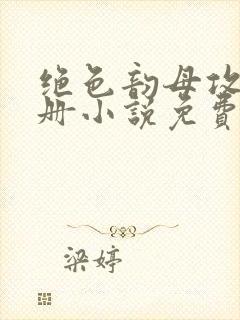 绝色韵母攻
册小说免費
梁婷